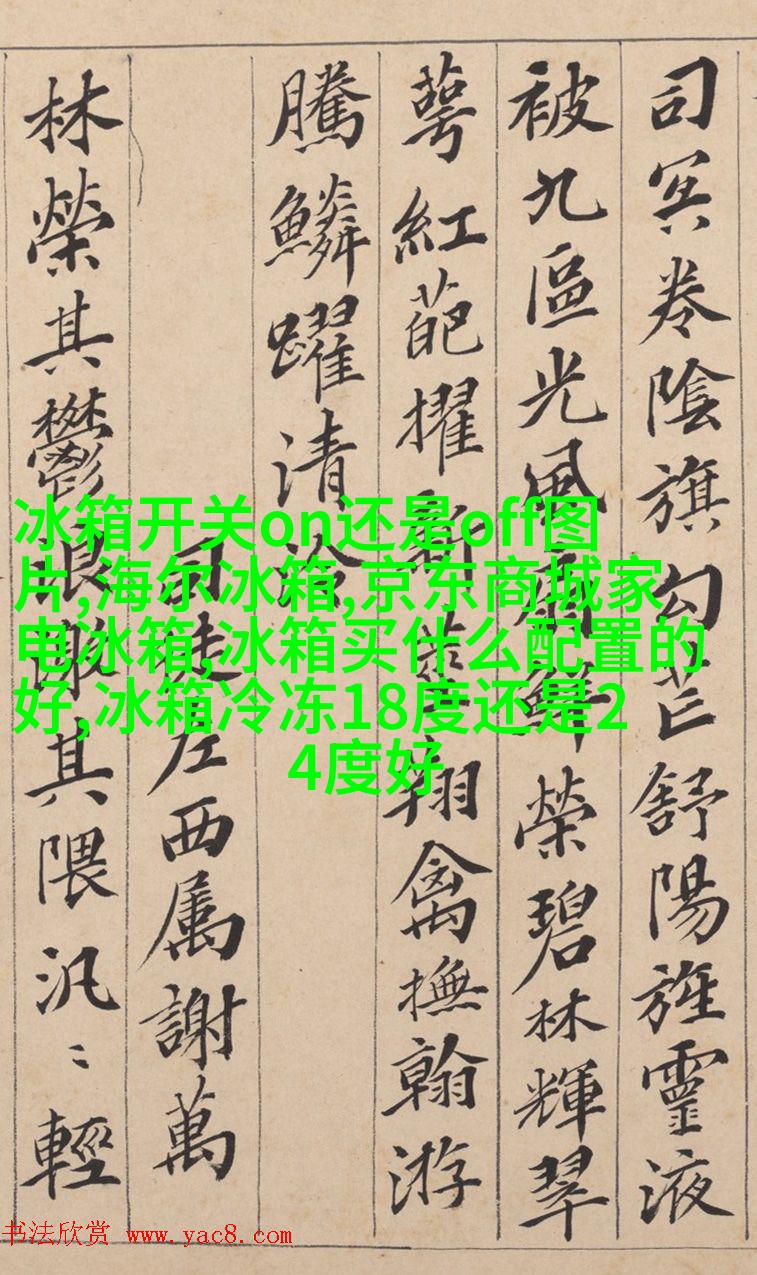 司冥卷陰旗勾芒舒陽旌靈液
被九區光風扇鮮榮碧林輝翠
萼紅葩擢新莖翔禽撫翰游
騰鱗躍清泠
司徒左西属謝萬
林榮其鬱浪激其隈汎〻輕
冰箱开关on还是off图
片,海尔冰箱,京东商城家
电冰箱,冰箱买什么配置的
好,冰箱冷冻18度还是2
4度好
书法欣赏 www.yac8.com